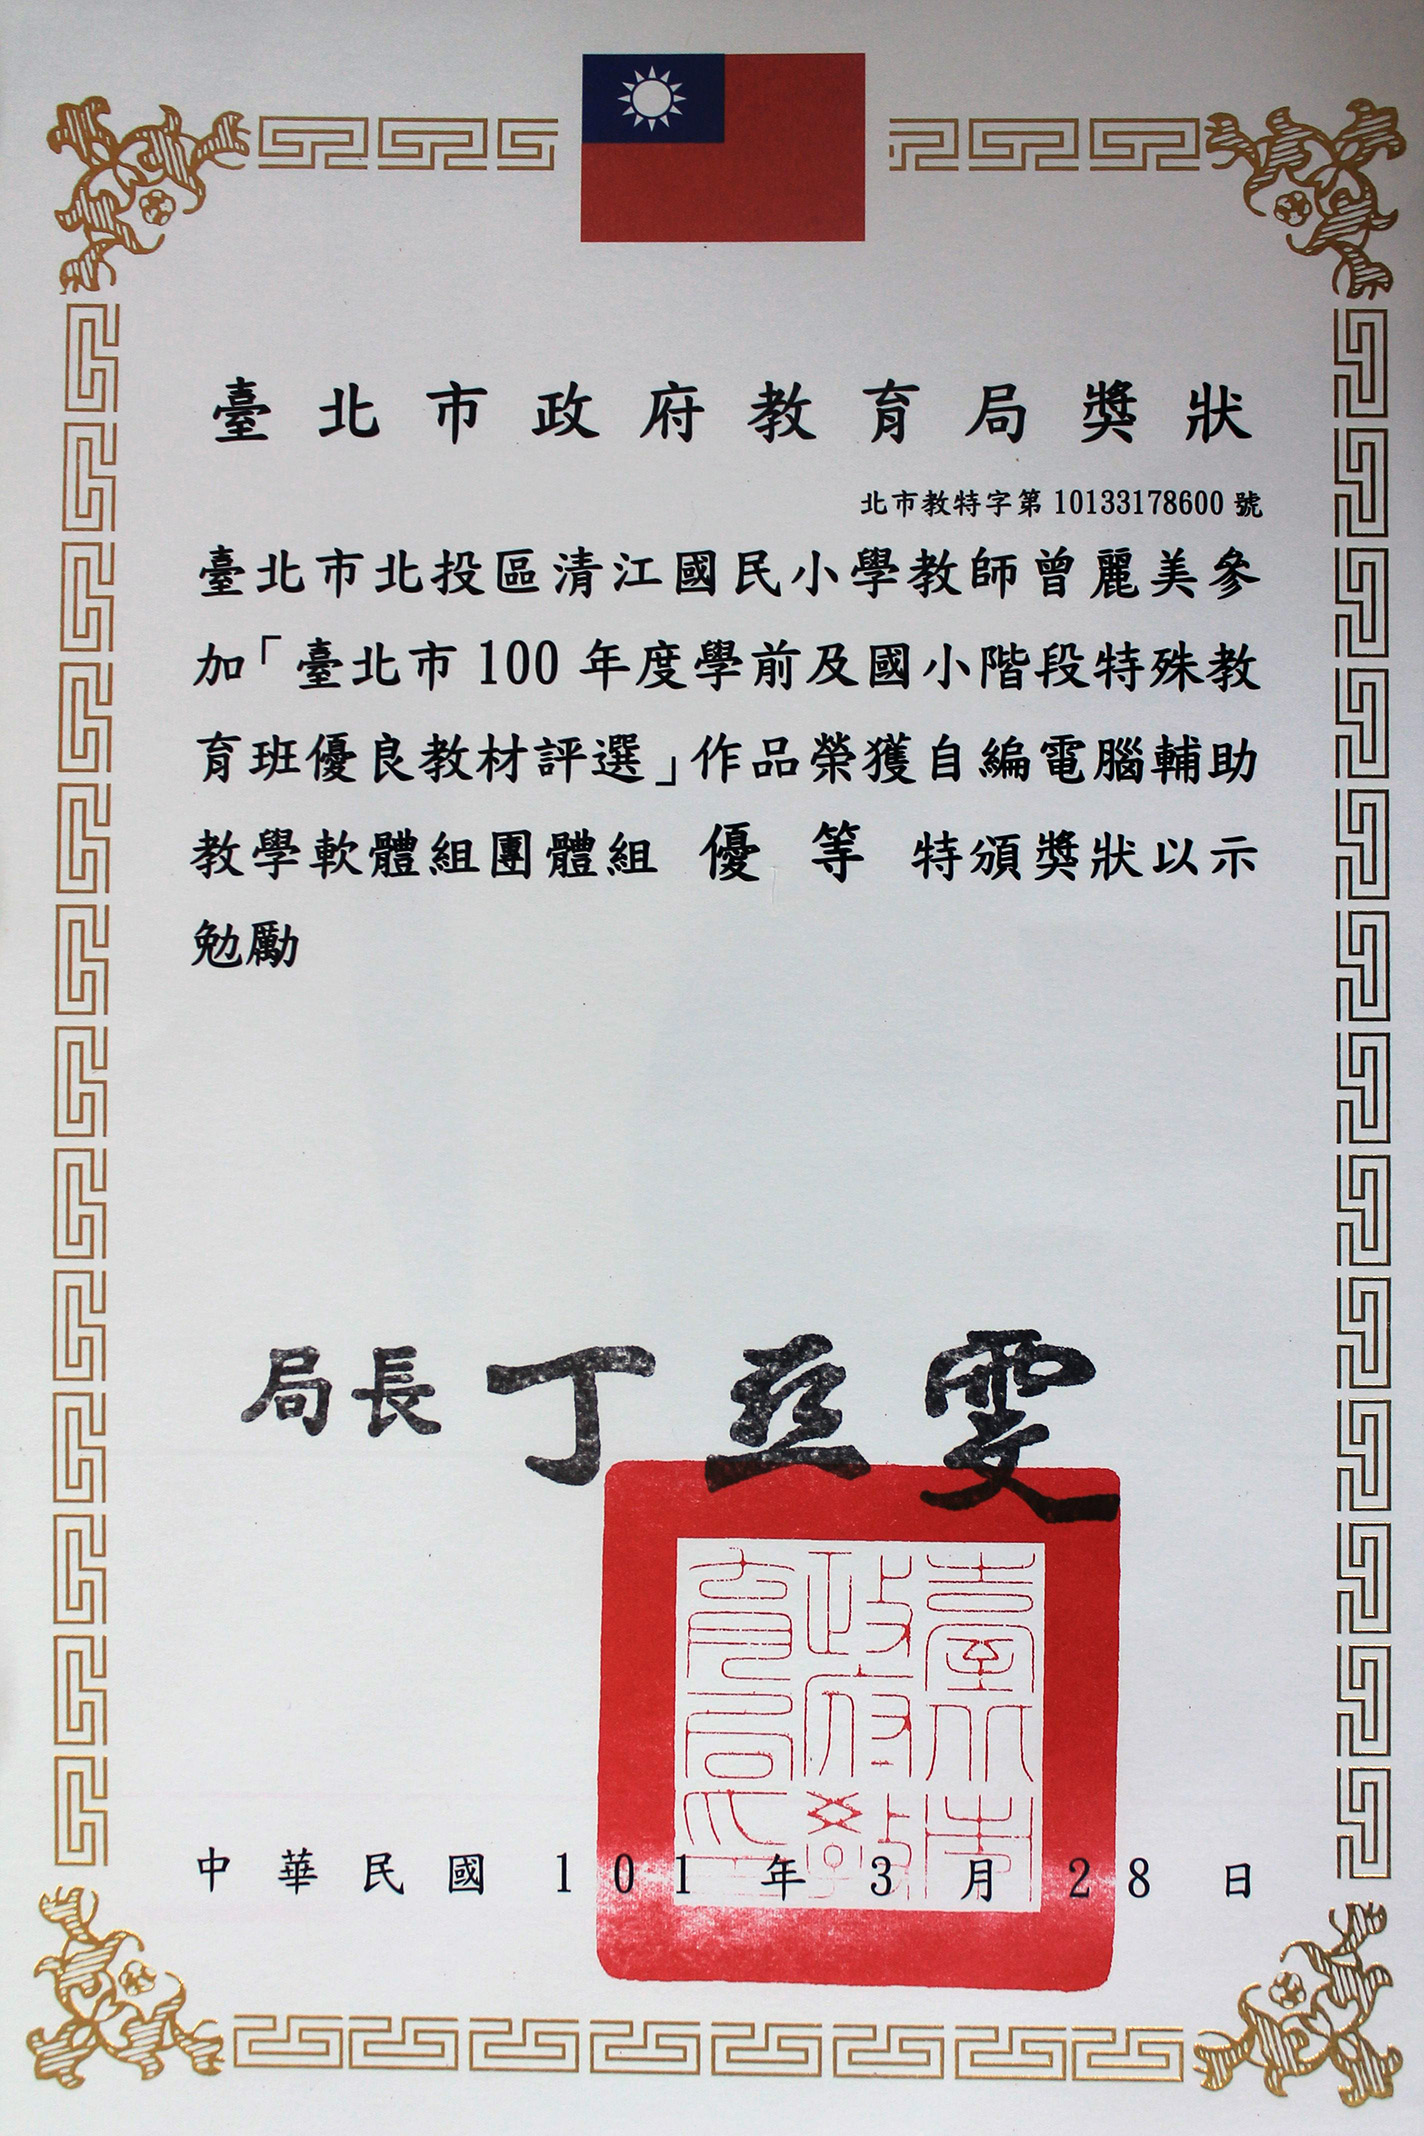 臺北市政府教育局獎狀
北市教特字第10133178600號
臺北市北投區清江國民小學教師曾麗美參
加「臺北市100年度學前及國小階段特殊教
育班優良教材評選」作品榮獲自編電腦輔助
教學軟體組團體組 優等 特頒獎狀以示
勉勵
局長丁亞雯
臺北市政府教育局印
中華民國101年3月28日